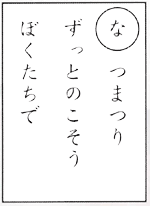 な つまつり
ずっとのこそう
ぼくたちで